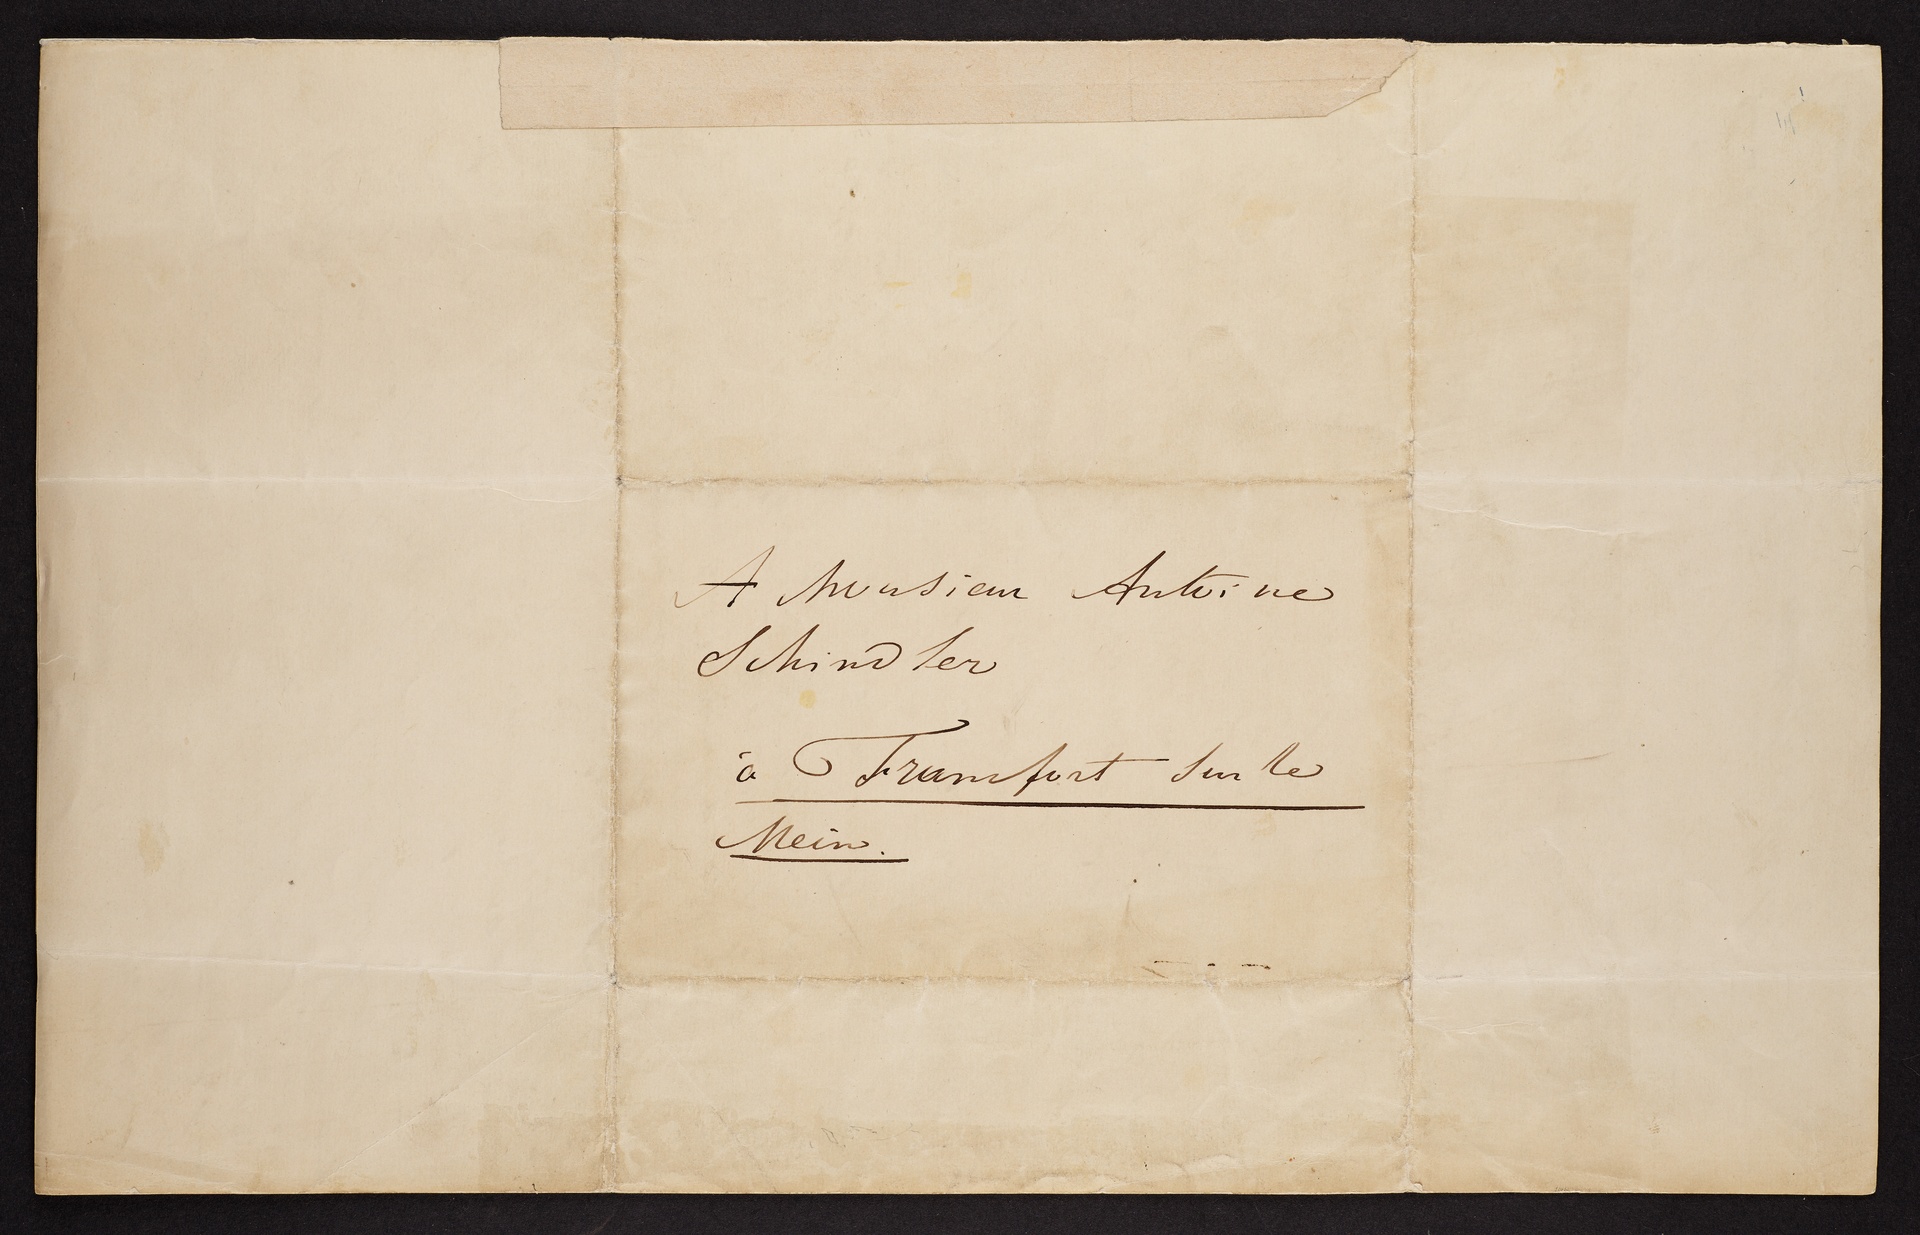 A Monsieur Antoine
Schindler
à Francfort sur le
Mein.